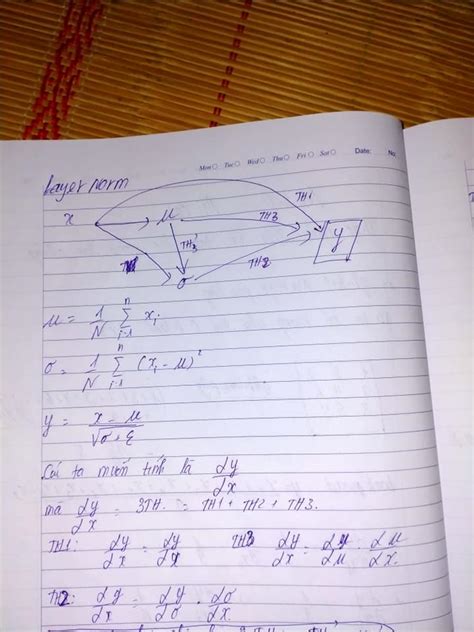 Mon Tue Wed Thu Fri Sat Date: No:
Layer norm
x μ TH3 TH1 y
TH3' TH2
σ
μ = 1/N Σ_{i=1}^{n} x_i
σ = 1/N Σ_{i=1}^{n} (x_i - μ)²
y = (x - μ)/√(σ + ε)
Cái ta muốn tính là dy/dx
mà dy/dx = 3TH = TH1 + TH2 + TH3.
TH1: dy/dx = dy/dx TH3 dy/dx = dy/dμ . dμ/dx
TH2: dy/dx = dy/dσ . dσ/dx